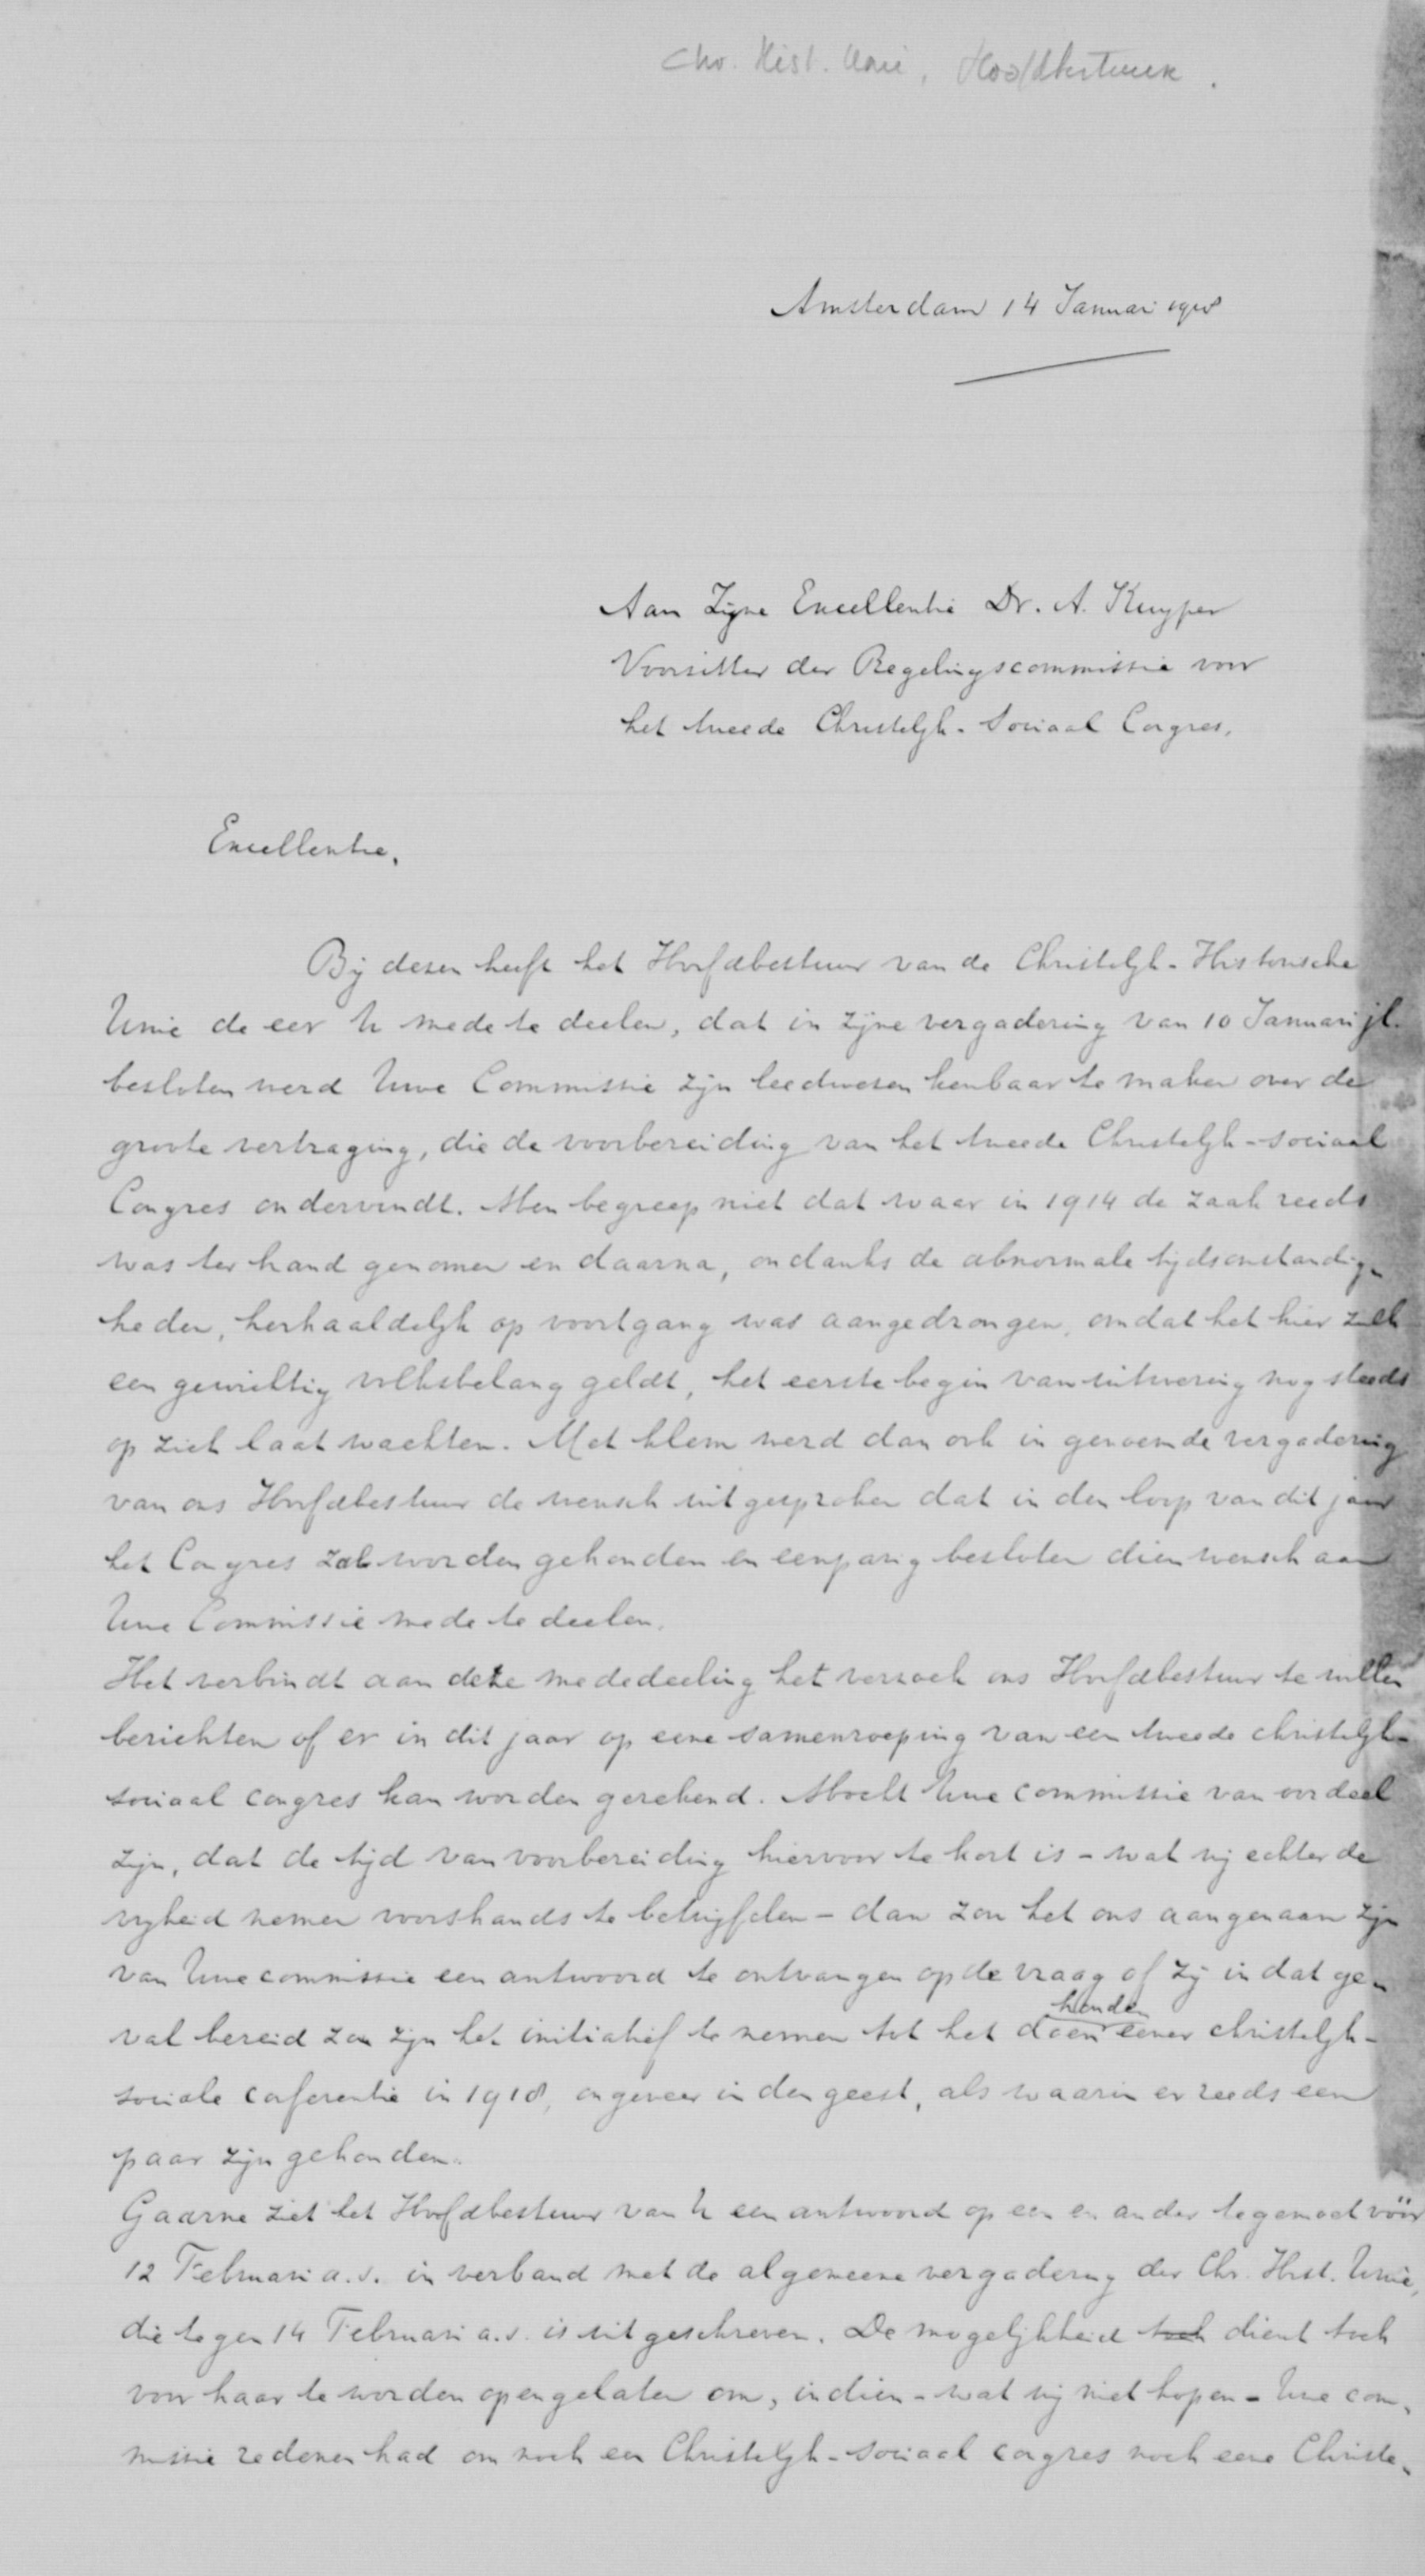 Chr. Hist. Unie, Hoofdbestuur.
Amsterdam 14 Januari 1918
Aan Zijne Excellentie Dr. A. Kuyper
Voorzitter der Regelingscommissie voor
het tweede Christelijk-Sociaal Congres.
Excellentie,
Bij dezen heeft het Hoofdbestuur van de Christelijk-Historische
Unie de eer U mede te deelen, dat in zijne vergadering van 10 Januari jl.
besloten werd Uwe Commissie zijn leedwezen kenbaar te maken over de
groote vertraging, die de voorbereiding van het tweede Christelijk-sociaal
Congres ondervindt. Men begreep niet dat waar in 1914 de zaak reeds
was ter hand genomen en daarna, ondanks de abnormale tijdsomstandig-
heden, herhaaldelijk op voortgang was aangedrongen, omdat het hier zich
een gewichtig volksbelang geldt, het eerste begin van uitvoering nog steeds
op zich laat wachten. Met klem werd dan ook in genoemde vergadering
van ons Hoofdbestuur de wensch uitgesproken dat in den loop van dit jaar
het Congres zal worden gehouden en eenparig besloten dien wensch aan
Uwe Commissie mede te deelen.
Het verbindt aan deze mededeeling het verzoek ons Hoofdbestuur te willen
berichten of er in dit jaar op eene samenroeping van een tweede christelijk-
sociaal congres kan worden gerekend. Mocht Uwe commissie van oordeel
zijn, dat de tijd van voorbereiding hiervoor te kort is - wat wij echter de
vrijheid nemen voorshands te betwijfelen - dan zou het ons aangenaam zijn
van Uwe commissie een antwoord te ontvangen op de vraag of zij in dat ge-
val bereid zou zijn het initiatief te nemen tot het doen houden eener christelijk-
sociale conferentie in 1918, ongeveer in den geest, als waarin er reeds een
paar zijn gehouden.
Gaarne ziet het Hoofdbestuur van U een antwoord op een en ander tegemoet vóór
12 Februari a.s. in verband met de algemeene vergadering der Chr. Hist. Unie,
die tegen 14 Februari a.s. is uitgeschreven. De mogelijkheid toch dient toch
voor haar te worden opengelaten om, indien - wat wij niet hopen - Uwe com-
missie redenen had om noch een Christelijk-sociaal congres noch eene Christe-